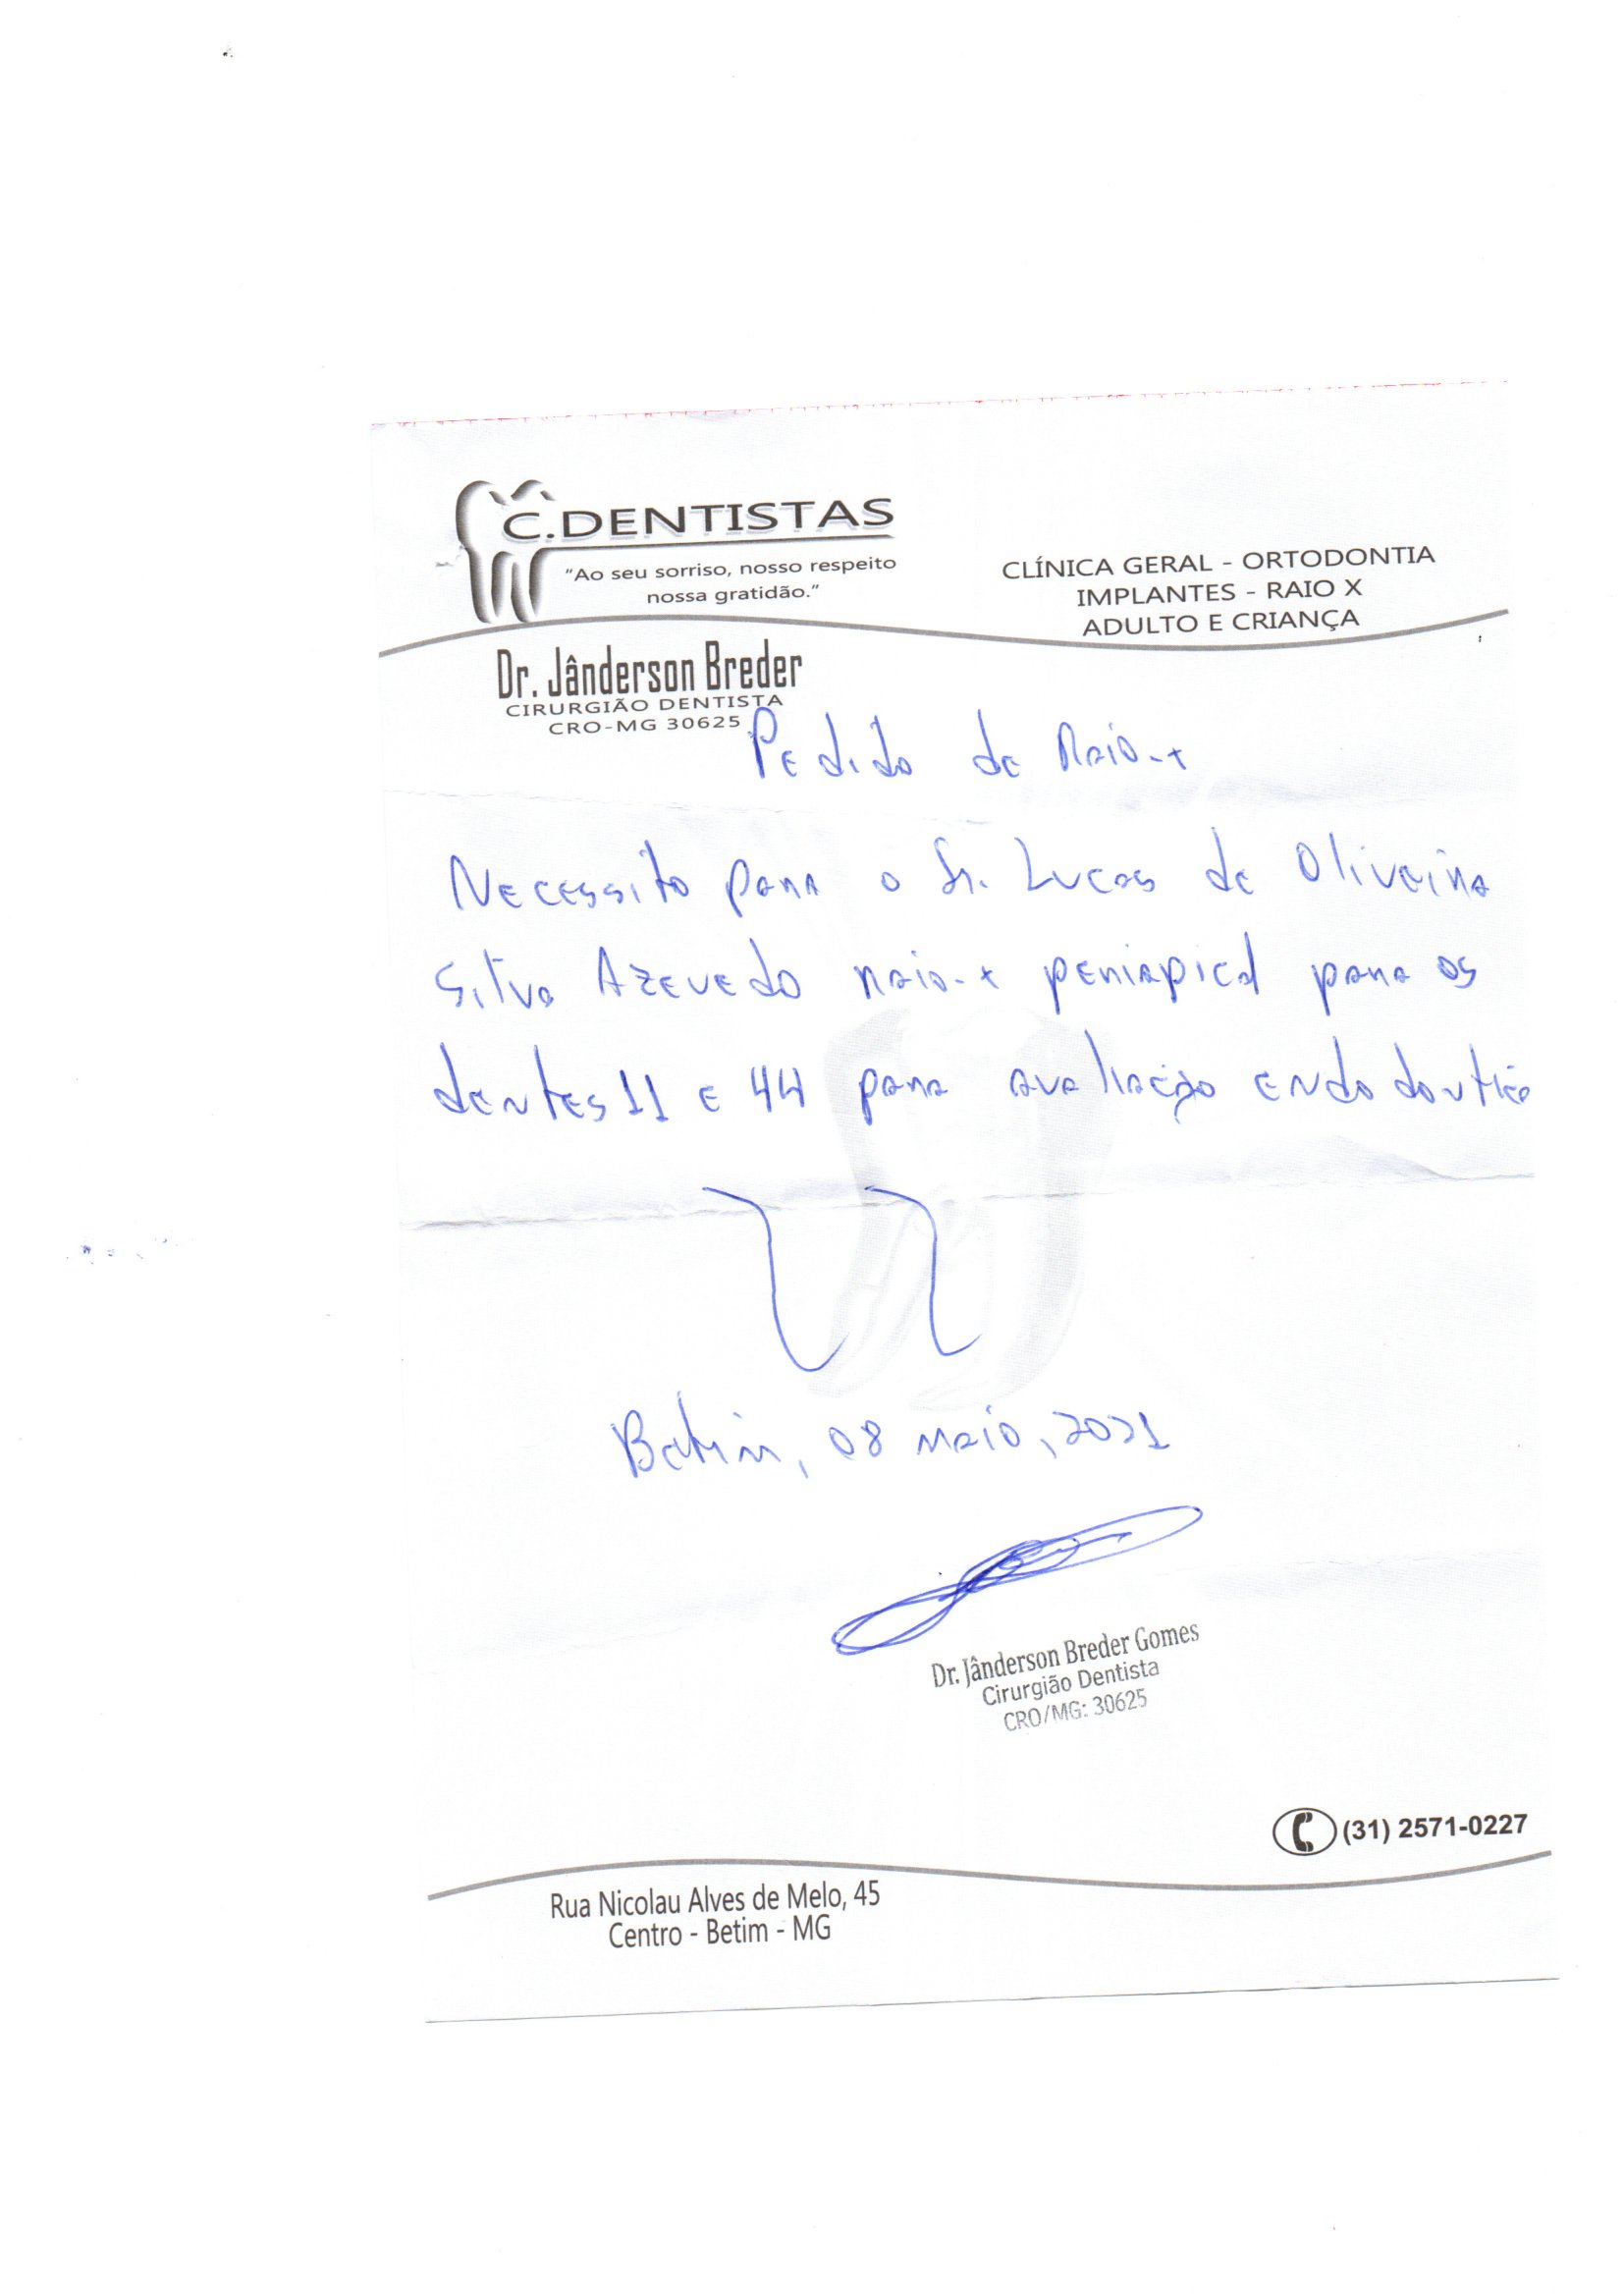 C.DENTISTAS
"Ao seu sorriso, nosso respeito
nossa gratidão."
CLÍNICA GERAL - ORTODONTIA
IMPLANTES - RAIO X
ADULTO E CRIANÇA
Dr. Jânderson Breder
CIRURGIÃO DENTISTA
CRO-MG 30625
Pedido de Raio-x
Necessito para o Sr. Lucas de Oliveira
Silva Azevedo raio-x periapical para os
dentes 11 e 44 para avaliação endodontica
Betim, 08 maio, 2021
Dr. Jânderson Breder Gomes
Cirurgião Dentista
CRO/MG: 30625
(31) 2571-0227
Rua Nicolau Alves de Melo, 45
Centro - Betim - MG